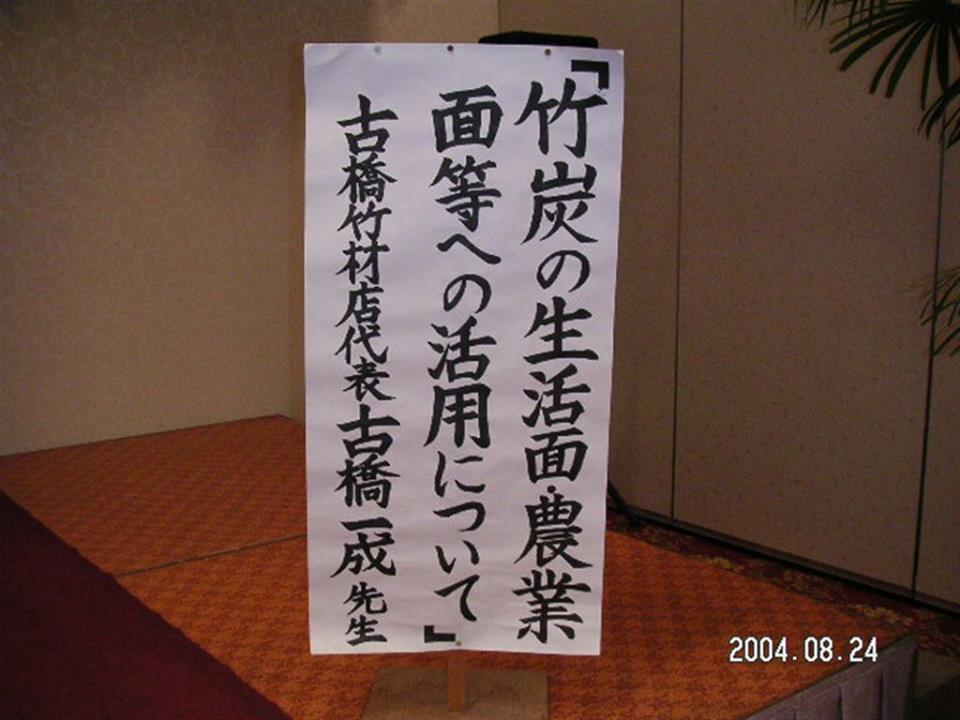 「竹炭の生活面・農業
面等への活用について」
古橋竹材店代表古橋一成先生
2004.08.24